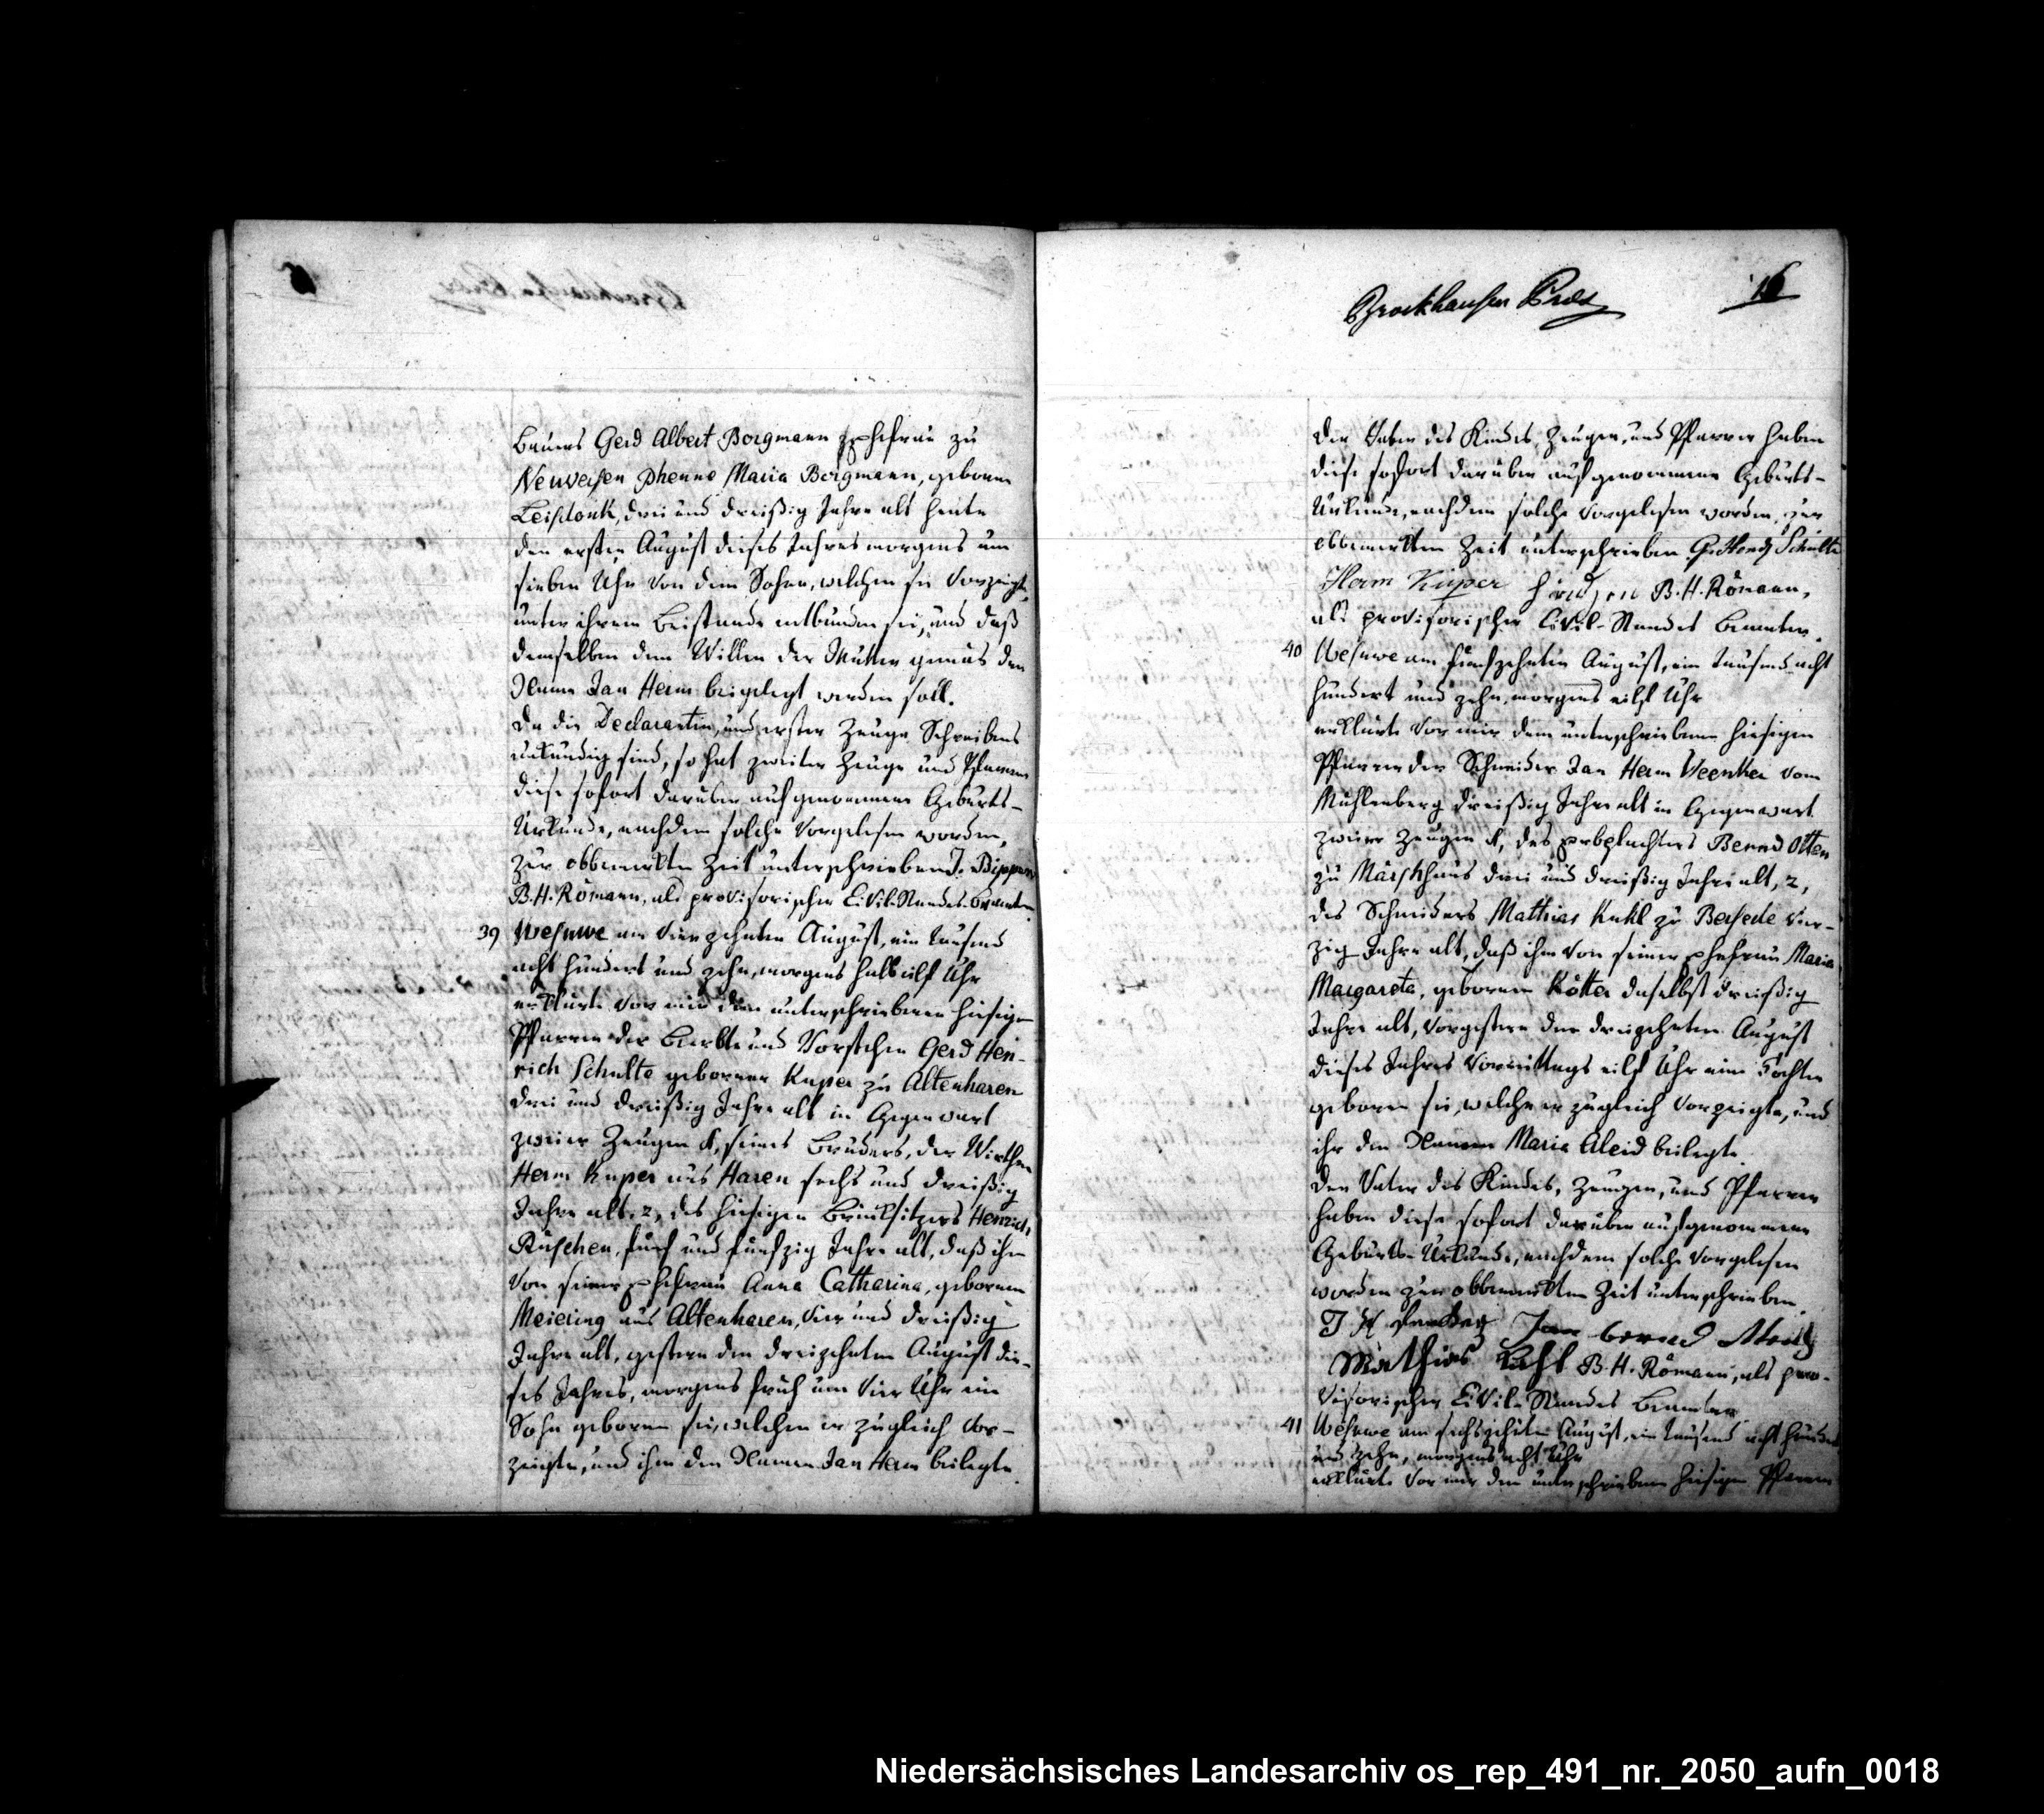 Bauers Gerd Albert Borgmann Ehefrau zu
Neuversen Maria Borgmann, geborne
drei und dreißig Jahre alt heute
den ersten August dieses Jahres morgens um
sieben Uhr von dem Sohne, welchen sie vorzeigte,
unter ihrem Beistande entbunden sei, und daß
demselben dem Willen der Mutter gemäs der
Name Jan Herm beigelegt werden soll.
Da die Declarantin, und erster Zeuge Schreibens
unkundig sind, so hat zweiter Zeuge und Pfarrer
diese sofort darüber aufgenommene Geburts-
Urkunde, nachdem solche vorgelesen worden,
zur obbemerkten Zeit unterschrieben J.
B. H. Römann, als provisorischer Civil-Standes-Beamter
39 Wesuwe am vierzehnten August, ein tausend
acht hundert und zehn, morgens halb eilf Uhr
erklärte vor mir dem unterschriebenen hiesigen
Pfarrer der Beerbte und Vorsteher Gerd Hein-
rich Schulte geborner Kuper zu Altenharen
drei und dreißig Jahre alt in Gegenwart
zweier Zeugen 1, seines Bruders, des Wirthen
Herm Kuper aus Haren sechs und dreißig
Jahre alt, 2, des hiesigen Brinksitzers Henrich
Ruschen, fünf und fünfzig Jahre alt, daß ihm
von seiner Ehefrau Anna Catharina, gebornen
Meiering aus Altenharen, vier und dreißig
Jahre alt, gestern den dreizehnten August die-
ses Jahres, morgens früh um vier Uhr ein
Sohn geboren sei, welchen er zugleich vor-
zeigte, und ihm den Namen Jan Herm beilegte.
Brockhausen Präs
16
Der Vater des Kindes, Zeugen, und Pfarrer haben
diese sofort darüber aufgenommene Geburts-
Urkunde, nachdem solche vorgelesen worden, zur
obbemerkten Zeit unterschrieben G. Henr Schulte
Herm Küper B. H. Römann,
als provisorischer Civil-Standes Beamter.
40 Wesuwe am fünfzehnten August, ein tausend acht
hundert und zehn, morgens eilf Uhr
erklärte vor mir dem unterschriebenen hiesigen
Pfarrer der Schneider Jan Herm Veenker vom
Mühlenberg dreißig Jahre alt in Gegenwart
zweier Zeugen 1, des Erbpächters Bernd Otten
zu drei und dreißig Jahre alt, 2,
des Schneiders Mathias Kuhl zu Bersede vier-
zig Jahre alt, daß ihm von seiner Ehefrau Maria
Margareta, gebornen Kötter daselbst dreißig
Jahre alt, vorgestern den dreizehnten August
dieses Jahres Vormittags eilf Uhr eine Tochter
geboren sei, welche er zugleich vorzeigte, und
ihr den Namen Maria Aleid beilegte.
Der Vater des Kindes, Zeugen, und Pfarrer
haben diese sofort darüber aufgenommene
Geburts-Urkunde, nachdem solche vorgelesen
worden zur obbemerkten Zeit unterschrieben.
J H Jan bernd
Mathias Kuhl B. H. Römann, als pro-
visorischer Civil-Standes Beamter
41 Wesuwe am sechszehnten August, ein tausend acht hundert
und zehn, morgens acht Uhr
erklärte vor mir dem unterschriebenen hiesigen Pfarrer
Niedersächsisches Landesarchiv os_rep_491_nr._2050_aufn_0018